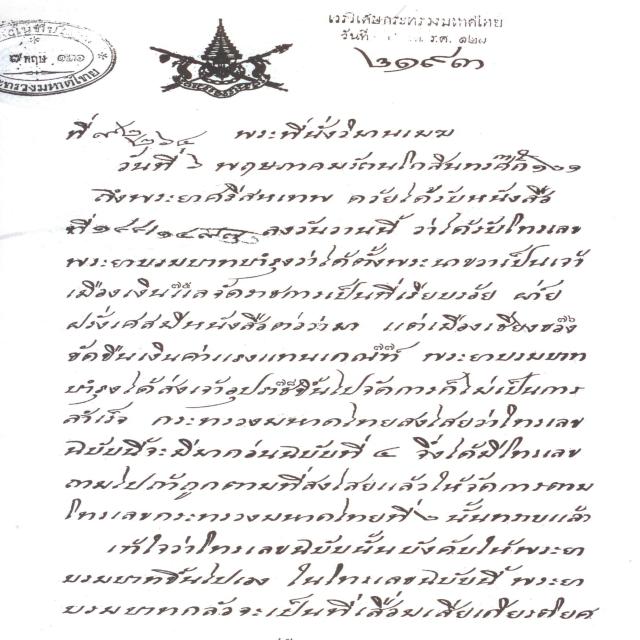 เวรวิเศษกระทรวงมหาดไทย
วันที่ ร,ศ, ๑๒๑
๒๑๙๓
๗ พฤษ, ๑๒๑
กระทรวงมหาดไทย
ที่ ๙๒/๒๖๔ พระที่นั่งวิมานเมฆ
วันที่ ๖ พฤษภาคม รัตนโกสินทรศก ๑๒๑
ถึงพระยาศรีสหเทพ ด้วยได้รับหนังสือ
ที่ ลงวันวานนี้ ว่าได้รับโทรเลข
พระยาบรมบาทบำรุงว่าได้ตั้งพระนายวาเป็นเจ้า
เมืองเงินแลจัดราชการเป็นที่เรียบร้อย ฝ่าย
ฝรั่งเศสมีหนังสือต่อว่ามา แต่เมืองเชียงขวง
ขัดขืนเงินค่าแรงแทนเกณฑ์ พระยาบรมบาท
บำรุงได้ส่งเจ้าอุปราชขึ้นไปจัดการก็ไม่เป็นการ
สำเร็จ กระทรวงมหาดไทยสงไสยว่าโทรเลข
ฉบับนี้จะมีมาก่อนฉบับที่ ๔ จึ่งได้มีโทรเลข
ถามไปถ้าถูกตามที่สงไสยแล้วให้จัดการตาม
โทรเลขกระทรวงมหาดไทยที่ ๒ นั้นทราบแล้ว
เข้าใจว่าโทรเลขฉบับนั้นบังคับให้พระยา
บรมบาทขึ้นไปเอง ในโทรเลขฉบับนี้ พระยา
บรมบาทกลัวจะเป็นที่เสื่อมเสียเกียรติยศ